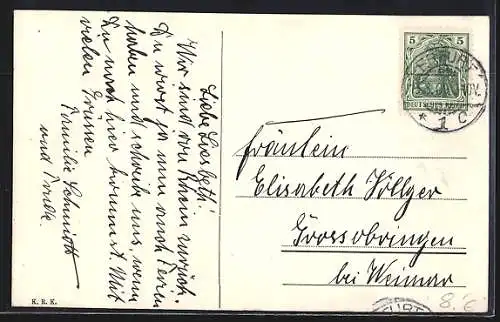 Liebe Liesbeth.
Wir sind vom Rhein zurück.
Du wirst ja nun auch Ferien
haben und schreib uns, wenn
Du nach hier kommst. Mit
vielen Grüssen
Familie Schmidt
und
K. B. K.
5 5
DEUTSCHES REICH
* 1 c
Fräulein
Elisabeth Söllger
Grossobringen
bei Weimar
FURT
8. 6